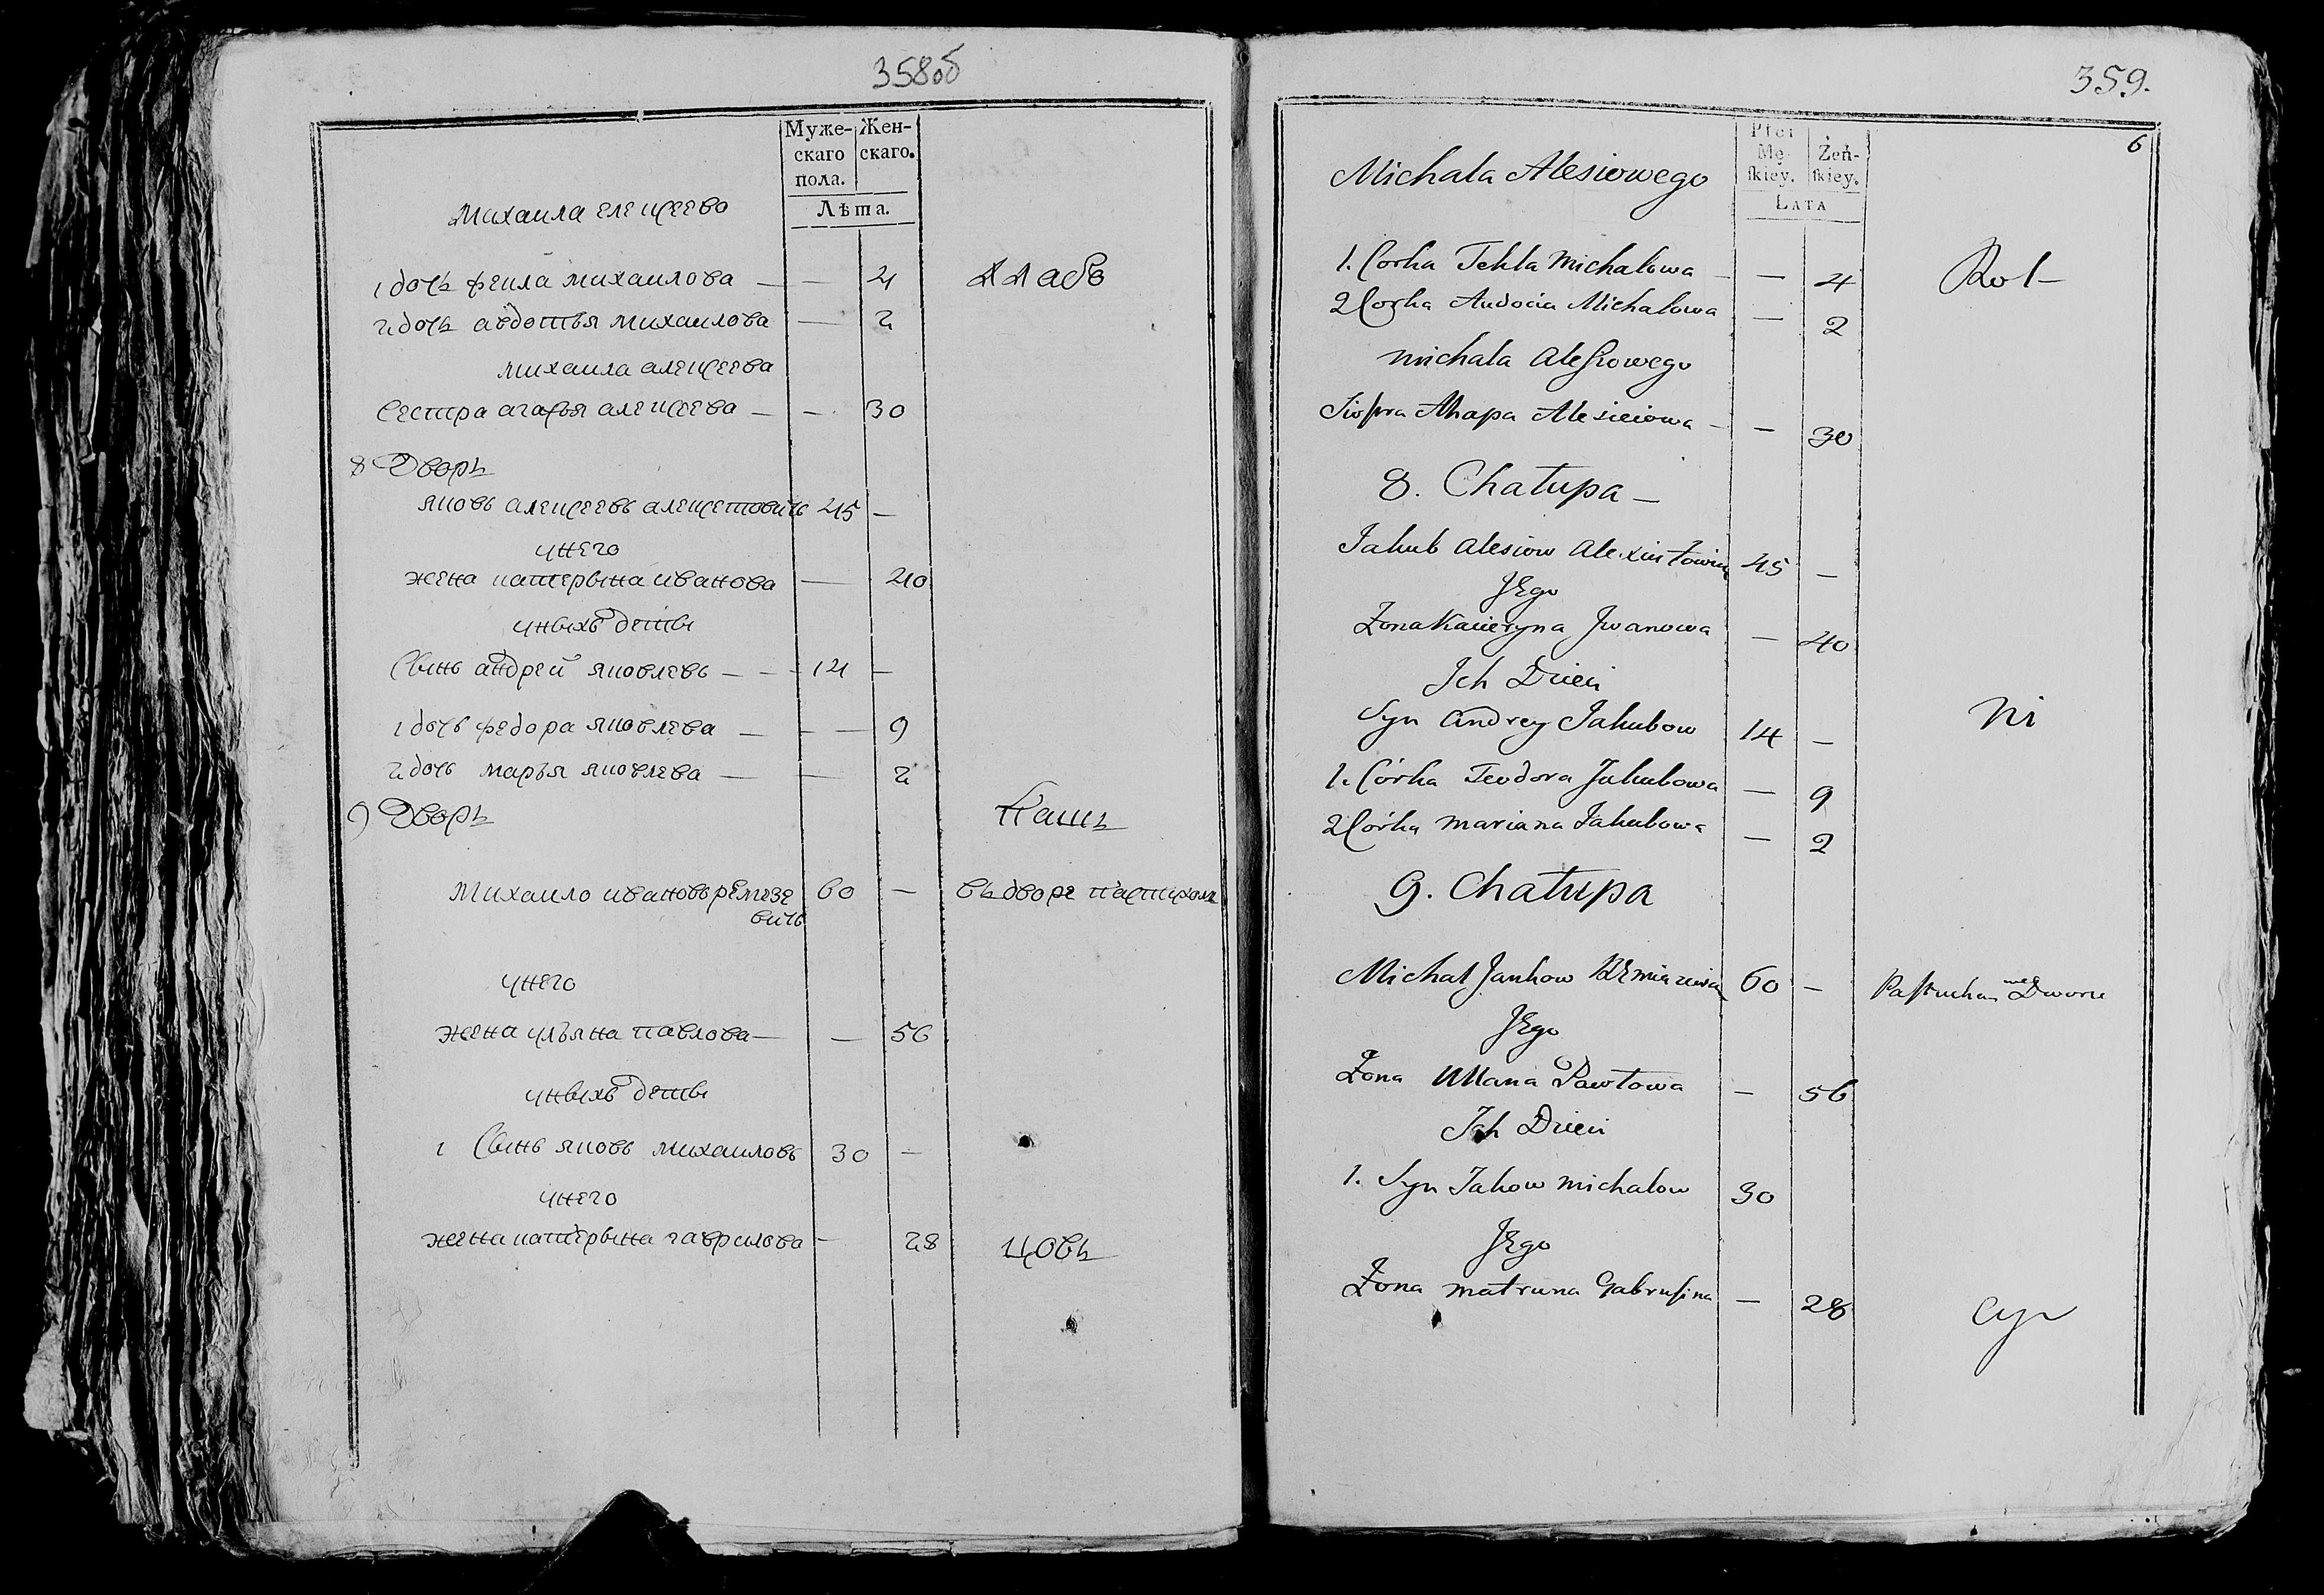 358об
Муже- Жен-
скаго скаго.
пола.
Лѣта.
Михаила елецеева
1 дочь фекла михаилова — — 4 хлабо
2 дочь авдотья михаилова — 2
михаила алецеева
Сестра агафья алецеева — — 30
8 Дворъ
яковь алецеевь алецетовичь 45 —
унего
жена катерына иванова — 40
уныхъ деты
Сынь андрей яковлевь — — 14 —
1 дочь федора яковлева — — 9
2 дочь марья яковлева — — 2
9 Дворъ
Пашъ
Михаило ивановь ремезе 60 — въ дворе пастухомъ
вичь
унего
жена ульяна павлова — — 56
уныхъ деты
1 Сынь яковь михаиловь 30 —
унего
жена катерына гаврилова — 28 цовъ
359.
6
Płci
Mę- Żeń-
ſkiey. ſkiey.
LATA
Michala Alesiowego
1. Corka Tekla Michalowa — — 4 Rol-
2 Corka Audocia Michalowa — 2
michala Aleſiowego
Siostra Ahapa Alesieiowa — — 30
8. Chatupa —
Jakub Alesiow Alexintowicz 45 —
JEgo
Zona Kacieryna Jwanowa — 40
Jch Dzieci
Syn Andrey Jakubow 14 — ni
1. Córka Teodora Jakubowa — 9
2 Córka mariana Jakubowa — 2
9. Chatupa
Michal Jankow REmiazewicz 60 — Paſtuchem we Dworze
JEgo
Zona Ullana Pawtowa — 56
Jch Dzieci
1. Syn Jakow michalow 30
JEgo
Zona matruna Gabruſina — 28 cy